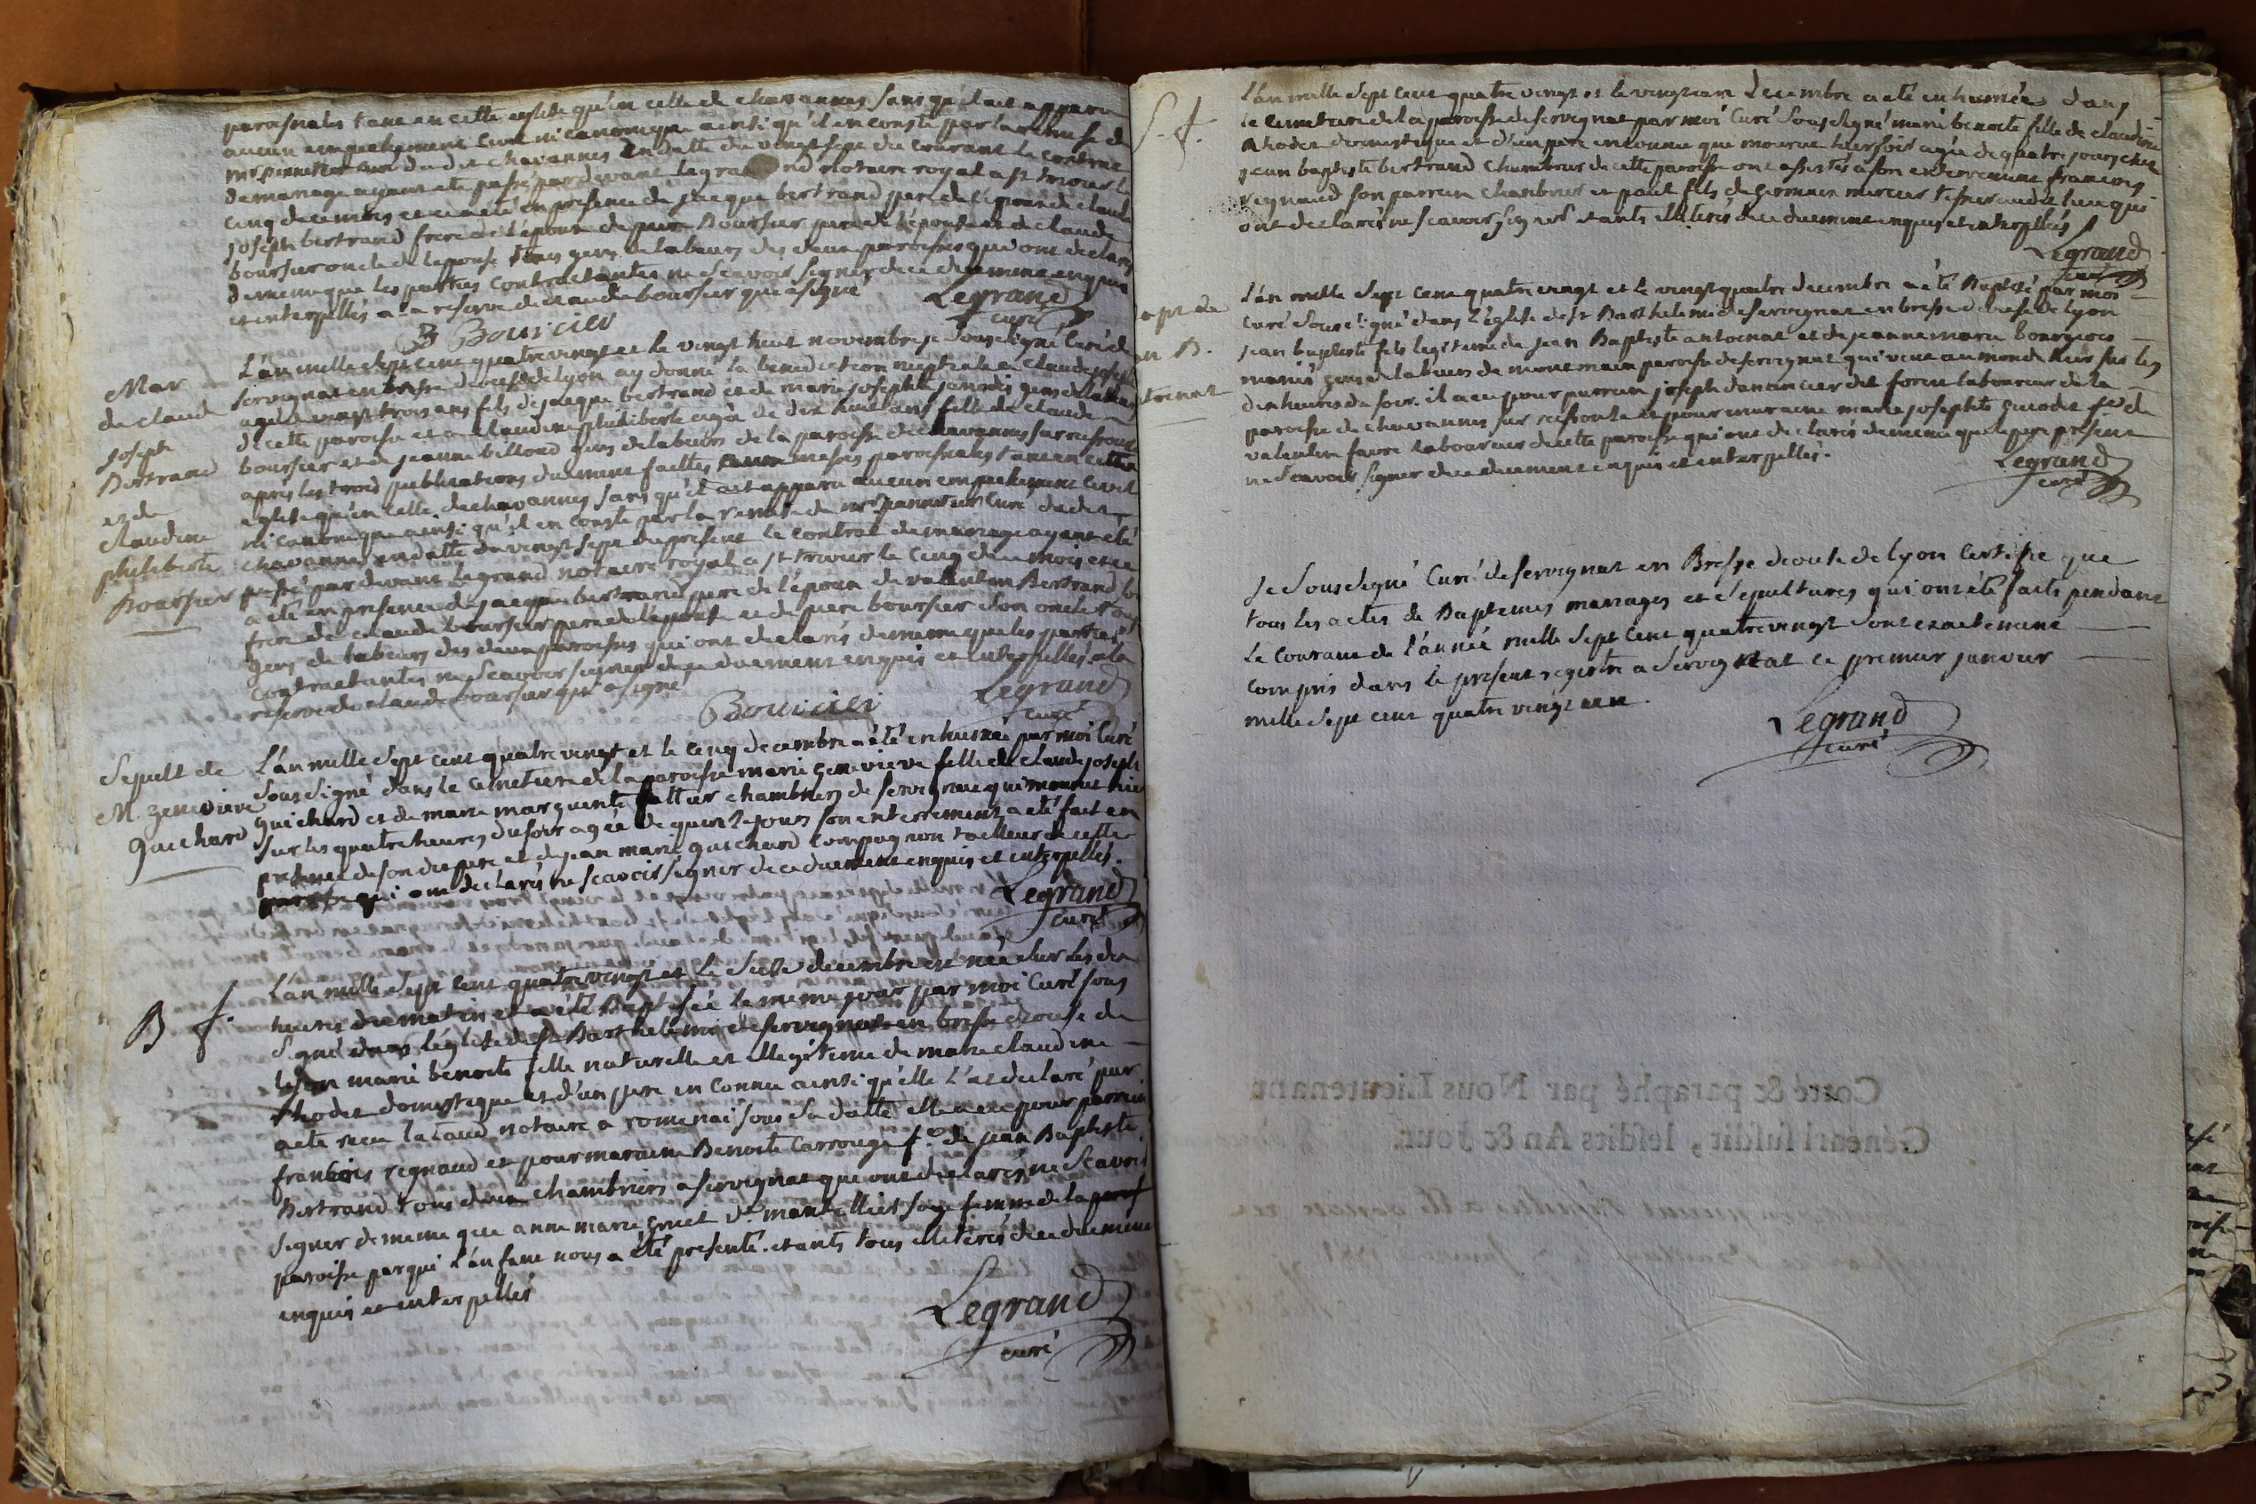 paroisiales tant en cette eglise qu'en celle de chavannes sans qu'il ait apparu
aucun empechement civil ni canonique ainsi qu'il en conste par la remise de
mr curé dudit chavannes en datte du vingt sept du courant le contrat
de mariage ayant été passé par devant legrand notaire royal a st trivier le
cinq decembre et ce a été en presence de jacque bertrand pere de l'epoux de claude
joseph bertrand frere de l'epoux de pierre Boursier pere de l'epouse et de claude
boursier oncle de l'epouse tous gens de labeurs des deux paroisses qui ont declarés
de meme que les parties contractantes ne scavoir signer de ce duement enquis
et interpellés a la reserve de claude boursier qui a signé
Legrand
curé
B Bourcier
Mar
de claude
joseph
Bertrand
et de
claudine
philiberte
Boursier
L'an mille sept cent quatre vingt et le vingt huit novembre je soussigné curé de
servignat en bresse diocese de lyon ay donné la benediction nuptiale a claude joseph
agé de vingt trois ans fils de jacque bertrand et de marie josephte gens de labeurs
de cette paroisse et a claudine philiberte agée de dix huit ans fille de claude
boursier et de jeanne billoud gens de labeurs de la paroisse de chavannes sur ressouze
apres les trois publications duement faittes a nos messes paroisiales tant en cette
eglise qu'en celle de chavannes sans qu'il ait apparu aucun empechement civil
ni canonique ainsi qu'il en conste par la remise de mr curé dudit
chavannes en datte du vingt sept du present le contrat de mariage ayant été
passé par devant Legrand notaire royal a st trivier le cinq de ce mois et ce
a été en presence de jacque bertrand pere de l'epoux de valentin Bertrand
frere de claude boursier pere de l'epouse et de pierre boursier son oncle tous
gens de labeurs des deux paroisses qui ont declarés de meme que les parties
contractantes ne scavoir signer de ce duement enquis et interpellés a la
reserve de claude boursier qui a signé
Bourcier
Legrand
curé
Sepult de
M. genevieve
guichard
L'an mille sept cent quatre vingt et le cinq decembre a été enhumée par moi curé
soussigné dans le cimetiere de la paroisse marie genevieve fille de claude joseph
guichard et de marie marguerite chambriers de servignat qui mourut hier
sur les quatre heures du soir agée de quinze jours son enterrement a été fait en
presence de son dit pere et de jean marie guichard compagnon tailleur de cette
paroisse qui ont declarés ne scavoir signer de ce duement enquis et interpellés.
Legrand
curé
B f.
L'an mille sept cent quatre vingt et le seize decembre est née sur les dix
heures du matin et a été Baptisée le meme jour par moi curé sous
signé dans l'eglise de st Barthelemi de servignat en bresse diocese de
lyon marie benoite fille naturelle et illegitime de marie claudine
Rhodet domestique et d'un pere inconnu ainsi qu'elle l'at declaré par
acte receu notaire a romenai sous sa datte elle a eu pour parrain
francois regnaud et pour maraine Benoite Carrouge f.e de jean Baptiste
Bertrand tous deux chambriers a servignat qui ont declarés ne scavoir
signer de meme que anne marie sage femme de la
paroisse par qui l'anfant nous a été presenté. etants tous illiterés de ce duement
enquis et interpellés
Legrand
curé
S. f.
L'an mille sept cent quatre vingt et le vingtieme decembre a été enhumée dans
le cimetiere de la paroisse de servignat par moi curé soussigné marie benoite fille de claudine
Rhodet domestique et d'un pere inconnu que mourut hier soir agée de quatre jours chez
jean baptiste bertrand chambrier de cette paroisse ont assistés a son enterrement francois
regnaud son parrein chambrier et paul fils de germain mercier qui
ont declarés ne scavoir signer etants illiterés de ce duement enquis et interpellés
Legrand
curé
apt de
n B.
toinat
L'an mille sept cent quatre vingt et le vingt quatre decembre a été Baptisé par moi
curé soussigné dans l'eglise de st Barthelemi de servignat en bresse diocese de lyon
jean baptiste fils legitime de jean Baptiste antoinat et de jeanne marie bourgeois
mariés gens de labeurs de mont main paroisse de servignat qui vint au monde hier sur les
dix heures du soir. il a eu pour parrein joseph dit foren laboureur de la
paroisse de chavannes sur ressouze et pour maraine marie josephte guiodet f.e de
valentin favre laboureur de cette paroisse qui ont declarés de meme que le pere present
ne scavoir signer de ce duement enquis et interpelles.
Legrand
curé
Je soussigné curé de servignat en Bresse diocese de lyon certifie que
tous les actes de Baptemes mariages et sepultures qui ont été faits pendant
le courant de l'année mille sept cent quatre vingt sont exactement
compris dans le present registre a servignat ce premier janvier
mille sept cent quatre vingt un.
Legrand
curé
Cotté & paraphé par Nous Lieutenant
Général susdit, lesdits An & jour.